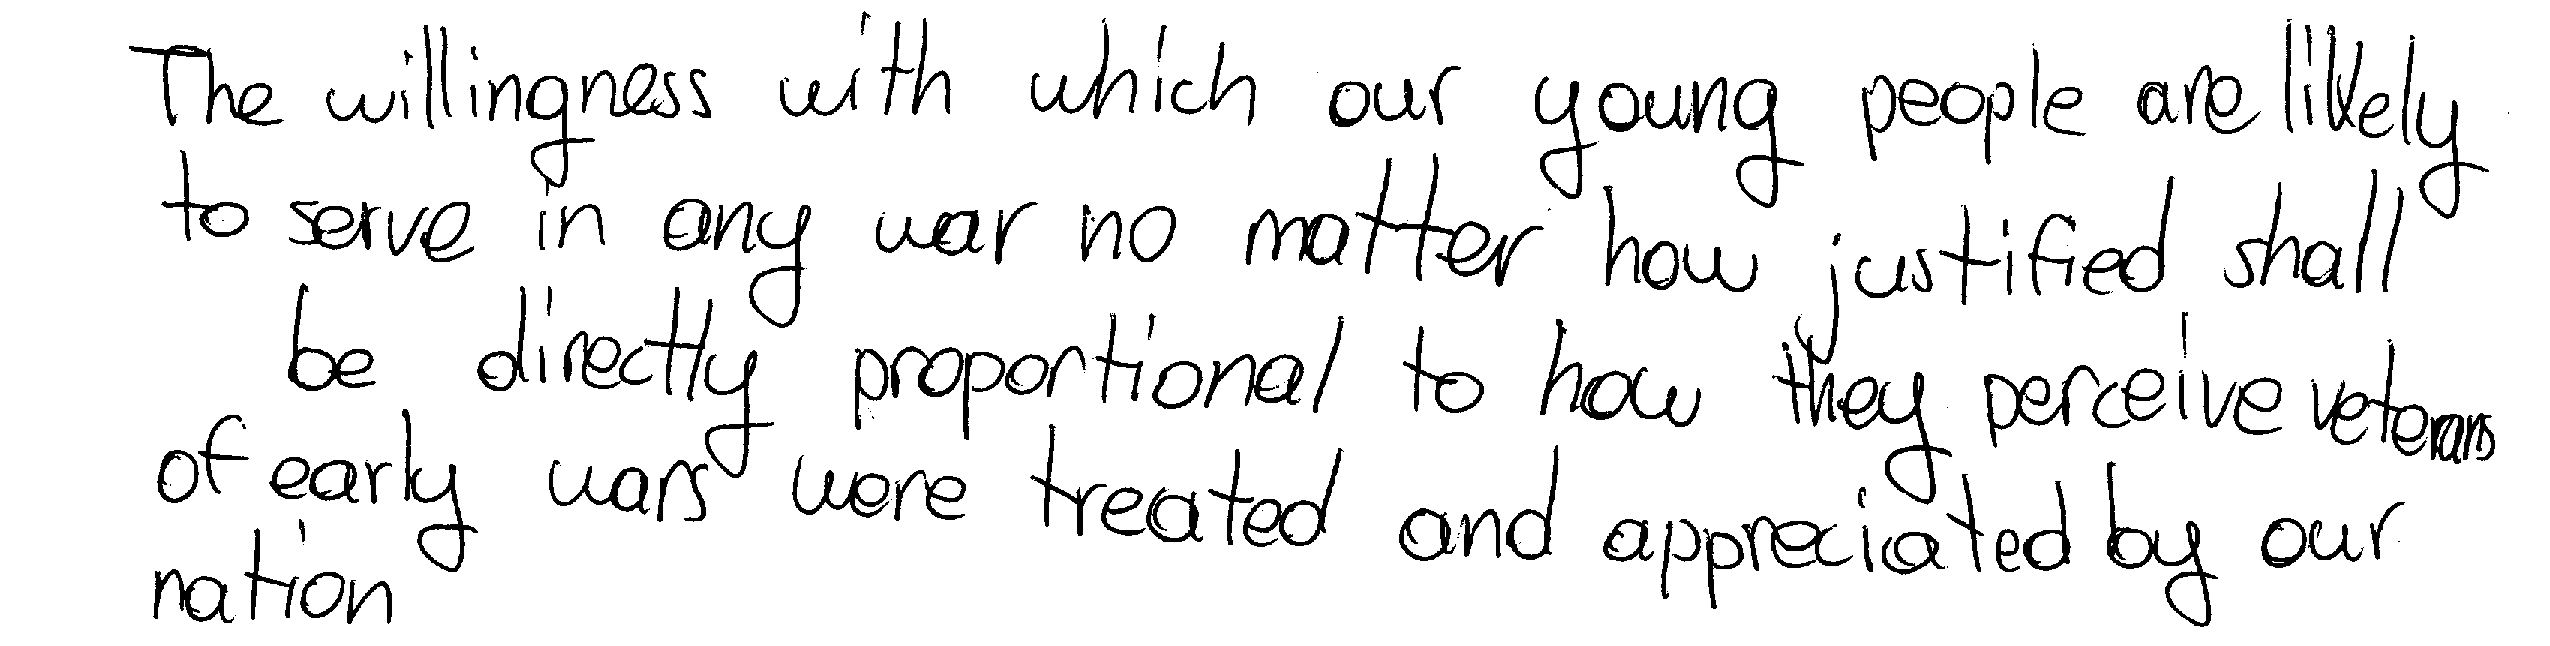 The willingness with which our young people are likely
to serve in any war no matter how justified shall
be directly proportional to how they perceive veterans
of early wars were treated and appreciated by our
nation